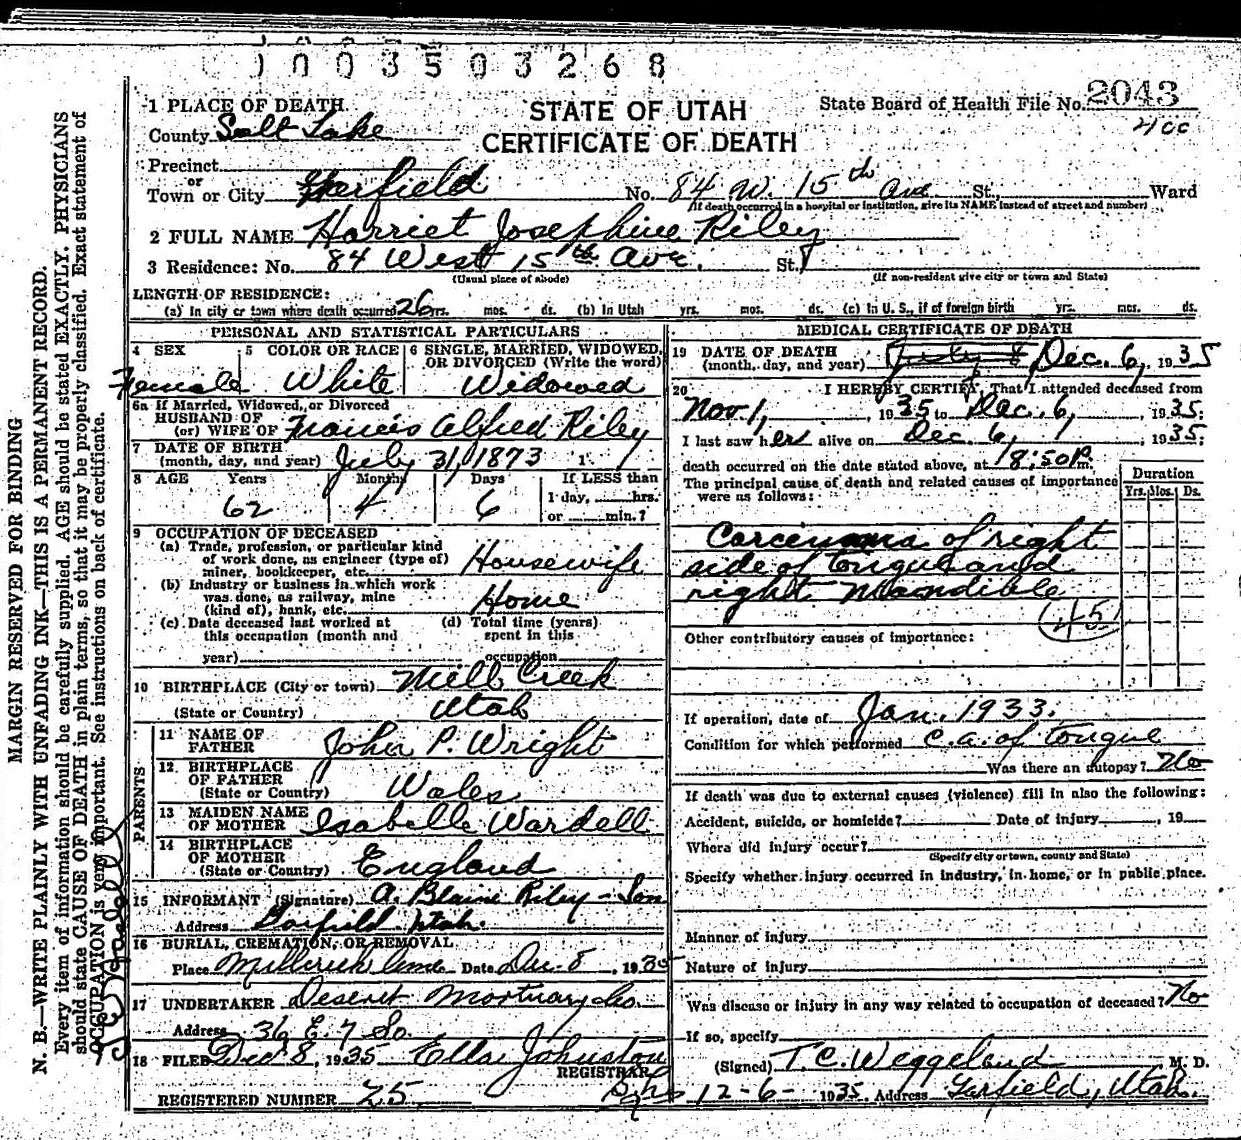 1 0 0 3 5 0 3 2 6 8
1 PLACE OF DEATH
County Salt Lake
STATE OF UTAH
CERTIFICATE OF DEATH
State Board of Health File No. 2043
4cc
Precinct
or
Town or City Garfield No. 84 W. 15th Ave St., Ward
(If death occurred in a hospital or institution, give its NAME instead of street and number)
2 FULL NAME Harriet Josephine Riley
3 Residence: No. 84 West 15th Ave. St.
(Usual place of abode) (If non-resident give city or town and State)
LENGTH OF RESIDENCE:
(a) In city or town where death occurred 26 yrs. mos. ds. (b) In Utah yrs. mos. ds. (c) In U. S., if of foreign birth yrs. mos. ds.
PERSONAL AND STATISTICAL PARTICULARS
4 SEX Female
5 COLOR OR RACE White
6 SINGLE, MARRIED, WIDOWED, OR DIVORCED (Write the word) Widowed
6a If Married, Widowed, or Divorced
HUSBAND OF
(or) WIFE OF Francis Alfred Riley
7 DATE OF BIRTH
(month, day, and year) July 31, 1873 1
8 AGE Years Months Days If LESS than
62 4 6 1 day, hrs.
or min.?
9 OCCUPATION OF DECEASED
(a) Trade, profession, or particular kind
of work done, as engineer (type of)
miner, bookkeeper, etc. Housewife
(b) Industry or business in which work
was done, as railway, mine
(kind of), bank, etc. Home
(c) Date deceased last worked at
this occupation (month and
year)
(d) Total time (years)
spent in this
occupation
10 BIRTHPLACE (City or town) Mill Creek
(State or Country) Utah
PARENTS
11 NAME OF
FATHER John P. Wright
12 BIRTHPLACE
OF FATHER
(State or Country) Wales
13 MAIDEN NAME
OF MOTHER Isabelle Wardell
14 BIRTHPLACE
OF MOTHER
(State or Country) England
15 INFORMANT (Signature) A. Blaine Riley - Son
Address Garfield Utah.
16 BURIAL, CREMATION, OR REMOVAL
Place Millcreek Cem. Date Dec. 8, 1935
17 UNDERTAKER Deseret Mortuary Co.
Address 36 E. 7 So.
18 FILED Dec 8, 1935 Ella Johnston
REGISTRAR
REGISTERED NUMBER 25
MEDICAL CERTIFICATE OF DEATH
19 DATE OF DEATH
(month, day, and year) Dec. 6, 1935
20 I HEREBY CERTIFY, That I attended deceased from
Nov. 1, 1935 to Dec. 6, 1935;
I last saw her alive on Dec. 6, 1935;
death occurred on the date stated above, at 8:50 P.m.
The principal cause of death and related causes of importance
were as follows:
Duration
Yrs. Mos. Ds.
Carcinoma of right
side of tongue and
right Mandible
45
Other contributory causes of importance:
If operation, date of Jan. 1933.
Condition for which performed c.a. of tongue
Was there an autopsy? No
If death was due to external causes (violence) fill in also the following:
Accident, suicide, or homicide? Date of injury , 19
Where did injury occur?
(Specify city or town, county and State)
Specify whether injury occurred in industry, in home, or in public place.
Manner of injury
Nature of injury
Was disease or injury in any way related to occupation of deceased? No
If so, specify
(Signed) T. C. Weggeland M. D.
12-6- 1935. Address Garfield, Utah.
MARGIN RESERVED FOR BINDING
N. B.—WRITE PLAINLY WITH UNFADING INK—THIS IS A PERMANENT RECORD.
Every item of information should be carefully supplied. AGE should be stated EXACTLY. PHYSICIANS
should state CAUSE OF DEATH in plain terms, so that it may be properly classified. Exact statement of
OCCUPATION is very important. See instructions on back of certificate.